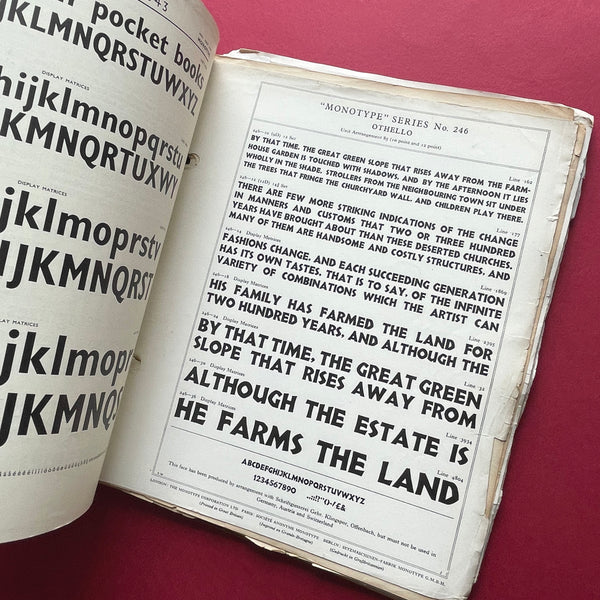 43
r pocket books
JKLMNQRSTUWXYZ
DISPLAY MATRICES
hijklmnopqrstu
KMNQRTUXWY
DISPLAY MATRICES
jklmoprstv
IJKMNQRST
DISPLAY MATRICES
jklmopr
JKMNQS
"MONOTYPE" SERIES No. 246
OTHELLO
Unit Arrangement 82 (10 point and 12 point)
Line 162
BY THAT TIME, THE GREAT GREEN SLOPE THAT RISES AWAY FROM THE FARM-
HOUSE GARDEN IS TOUCHED WITH SHADOWS, AND BY THE AFTERNOON IT LIES
WHOLLY IN THE SHADE. STROLLERS FROM THE NEIGHBOURING TOWN SIT UNDER
THE TREES THAT FRINGE THE CHURCHYARD WALL, AND CHILDREN PLAY THERE.
Line 177
THERE ARE FEW MORE STRIKING INDICATIONS OF THE CHANGE
IN MANNERS AND CUSTOMS THAT TWO OR THREE HUNDRED
YEARS HAVE BROUGHT ABOUT THAN THESE DESERTED CHURCHES.
MANY OF THEM ARE HANDSOME AND COSTLY STRUCTURES, AND
246—14 Display Matrices
FASHIONS CHANGE, AND EACH SUCCEEDING GENERATION
HAS ITS OWN TASTES, THAT IS TO SAY, OF THE INFINITE
VARIETY OF COMBINATIONS WHICH THE ARTIST CAN
246—18 Display Matrices
HIS FAMILY HAS FARMED THE LAND FOR
TWO HUNDRED YEARS, AND ALTHOUGH THE
246—24 Display Matrices
BY THAT TIME, THE GREAT GREEN
SLOPE THAT RISES AWAY FROM
246—30 Display Matrices Line 3934
ALTHOUGH THE ESTATE IS
246—36 Display Matrices Line 4804
HE FARMS THE LAND
ABCDEFGHIJKLMNOPQRSTUVWXYZ
1234567890 .,:;!?''()-/£&
This face has been produced by arrangement with Schriftgiesserei Gebr. Klingspor, Offenbach, but must not be used in
Germany, Austria and Switzerland
LONDON: THE MONOTYPE CORPORATION LTD PARIS: SOCIÉTÉ ANONYME MONOTYPE BERLIN: SETZMASCHINEN-FABRIK MONOTYPE G.M.B.H.
(Printed in Great Britain) (Imprimé en Grande-Bretagne) (Gedruckt in Großbritannien)